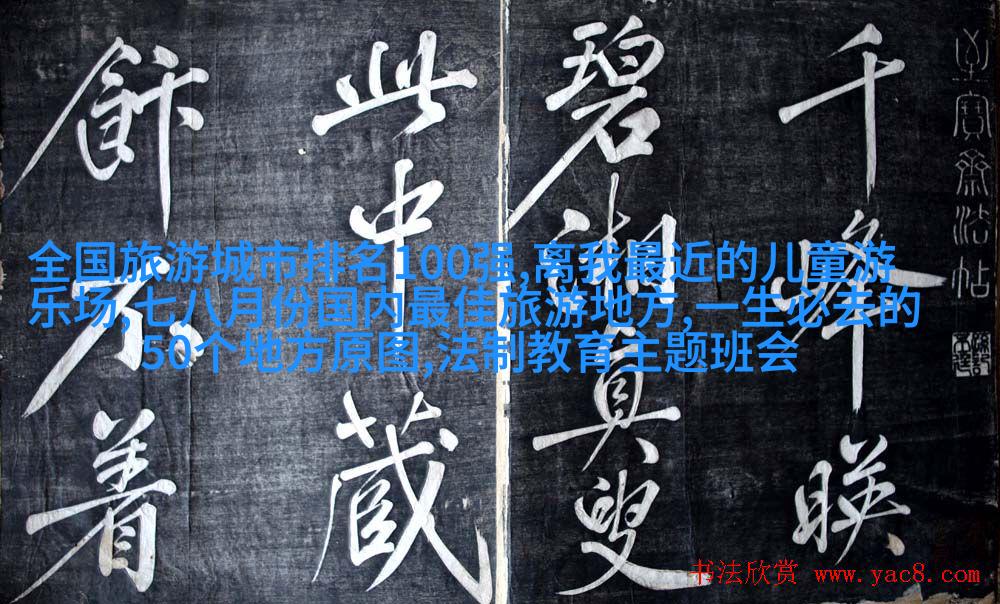 至寶齋法帖
千峰暎
碧湘真叟
此中藏
飰不着
全国旅游城市排名100强,离我最近的儿童游
乐场,七八月份国内最佳旅游地方,一生必去的
50个地方原图,法制教育主题班会
书法欣赏 www.yac8.com